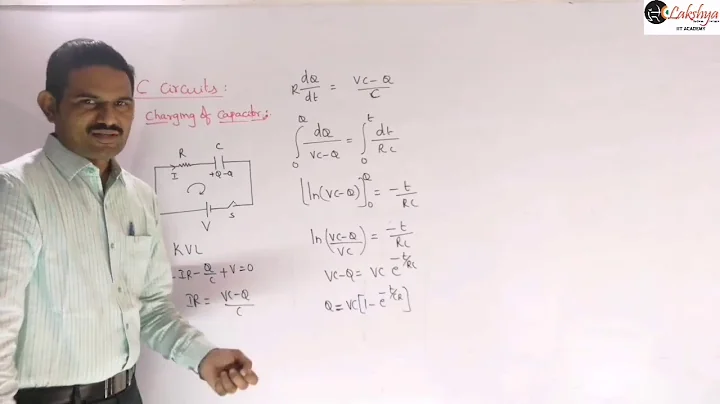 Lakshya
IIT ACADEMY
C Circuits:
Charging of Capacitor:
R
C
I
+Q-Q
V
S
KVL
-IR-Q/C+V=0
IR= VC-Q/C
R dQ/dt = VC-Q/C
∫₀^Q dQ/VC-Q = ∫₀^t dt/RC
[ln(VC-Q)]₀^Q = -t/RC
ln(VC-Q/VC) = -t/RC
VC-Q= VC e^-t/RC
Q=VC[1-e^-t/CR]